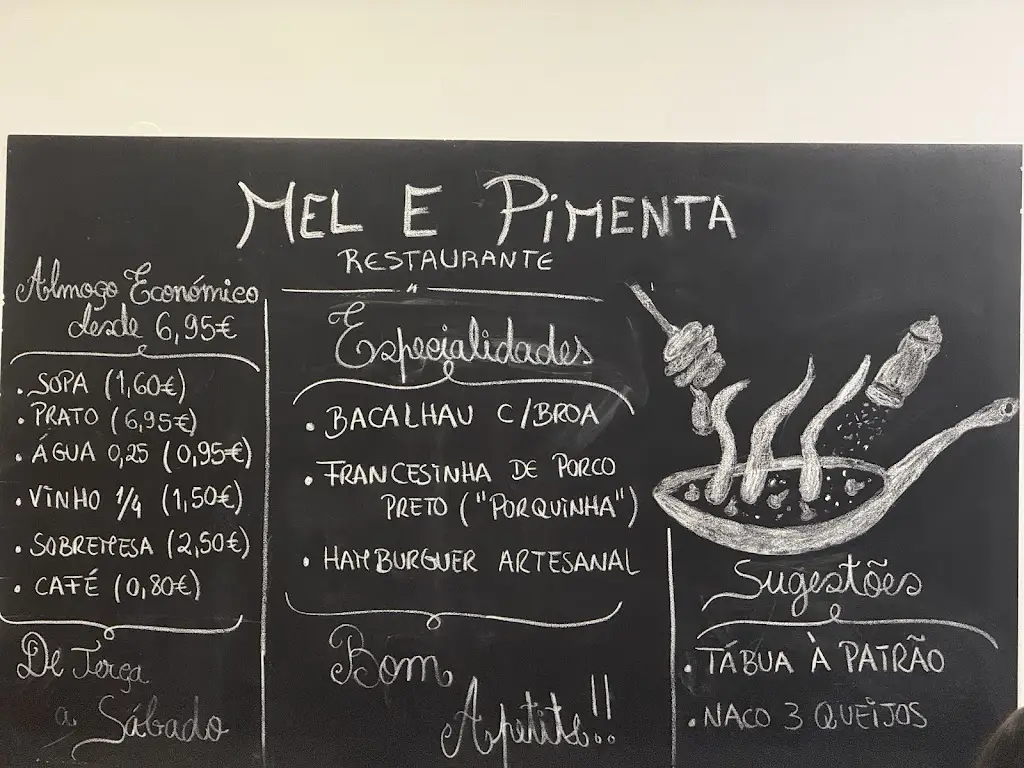 MEL E PIMENTA
RESTAURANTE
Almoço Económico
desde 6,95€
. SOPA (1,60€)
. PRATO (6,95€)
. ÁGUA 0,25 (0,95€)
. VINHO 1/4 (1,50€)
. SOBREMESA (2,50€)
. CAFÉ (0,80€)
De Terça
a Sábado
Especialidades
. BACALHAU C/BROA
. FRANCESINHA DE PORCO
PRETO ("PORQUINHA")
. HAMBURGUER ARTESANAL
Bom
Apetite!!
Sugestões
. TÁBUA À PATRÃO
. NACO 3 QUEIJOS